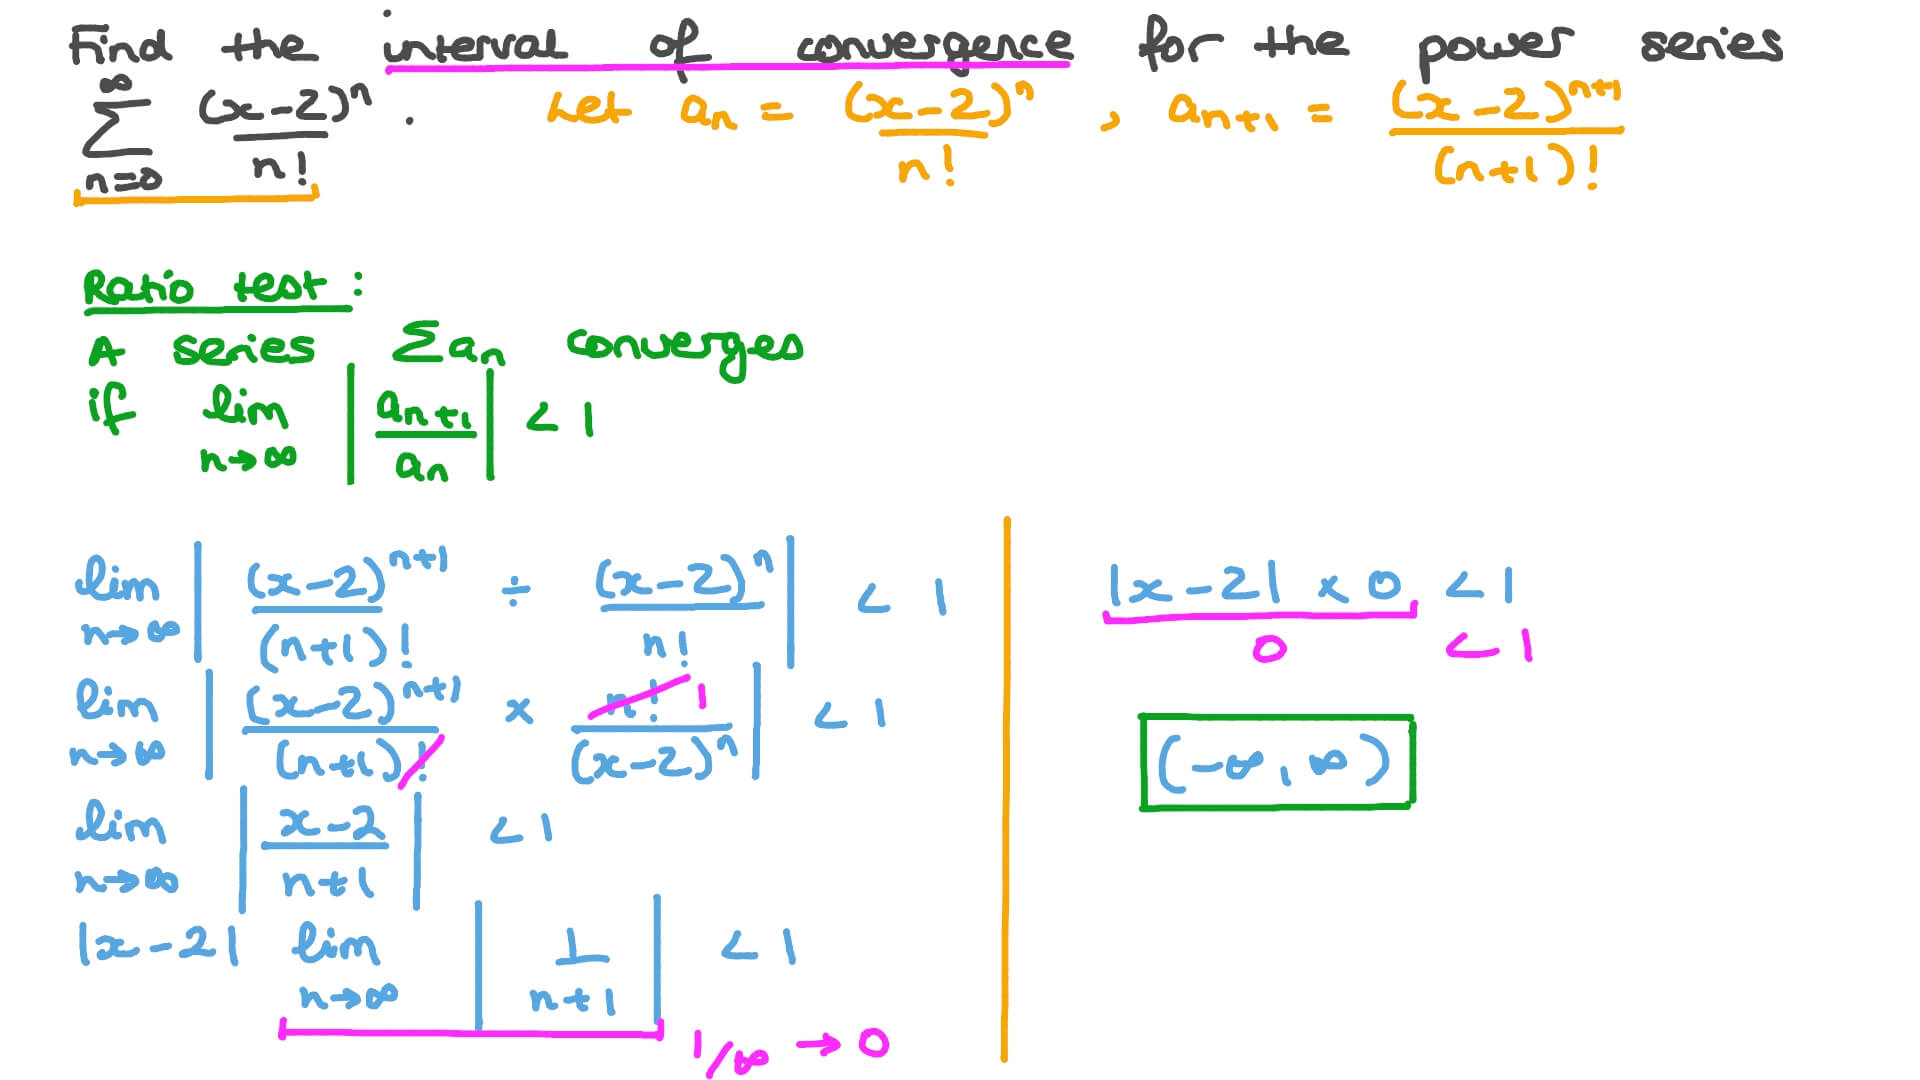 Find the interval of convergence for the power series
∞
∑ (x-2)ⁿ/n! . Let aₙ = (x-2)ⁿ/n! , aₙ₊₁ = (x-2)ⁿ⁺¹/(n+1)!
n=0
Ratio test:
A series ∑aₙ converges
if lim |aₙ₊₁/aₙ| < 1
n→∞
lim | (x-2)ⁿ⁺¹/(n+1)! ÷ (x-2)ⁿ/n! | < 1
n→∞
lim | (x-2)ⁿ⁺¹/(n+1)! × n!/(x-2)ⁿ | < 1
1
n→∞
lim | x-2/n+1 | < 1
n→∞
|x-2| lim | 1/n+1 | < 1
n→∞
1/∞ → 0
|x-2| × 0 < 1
0 < 1
(-∞, ∞)